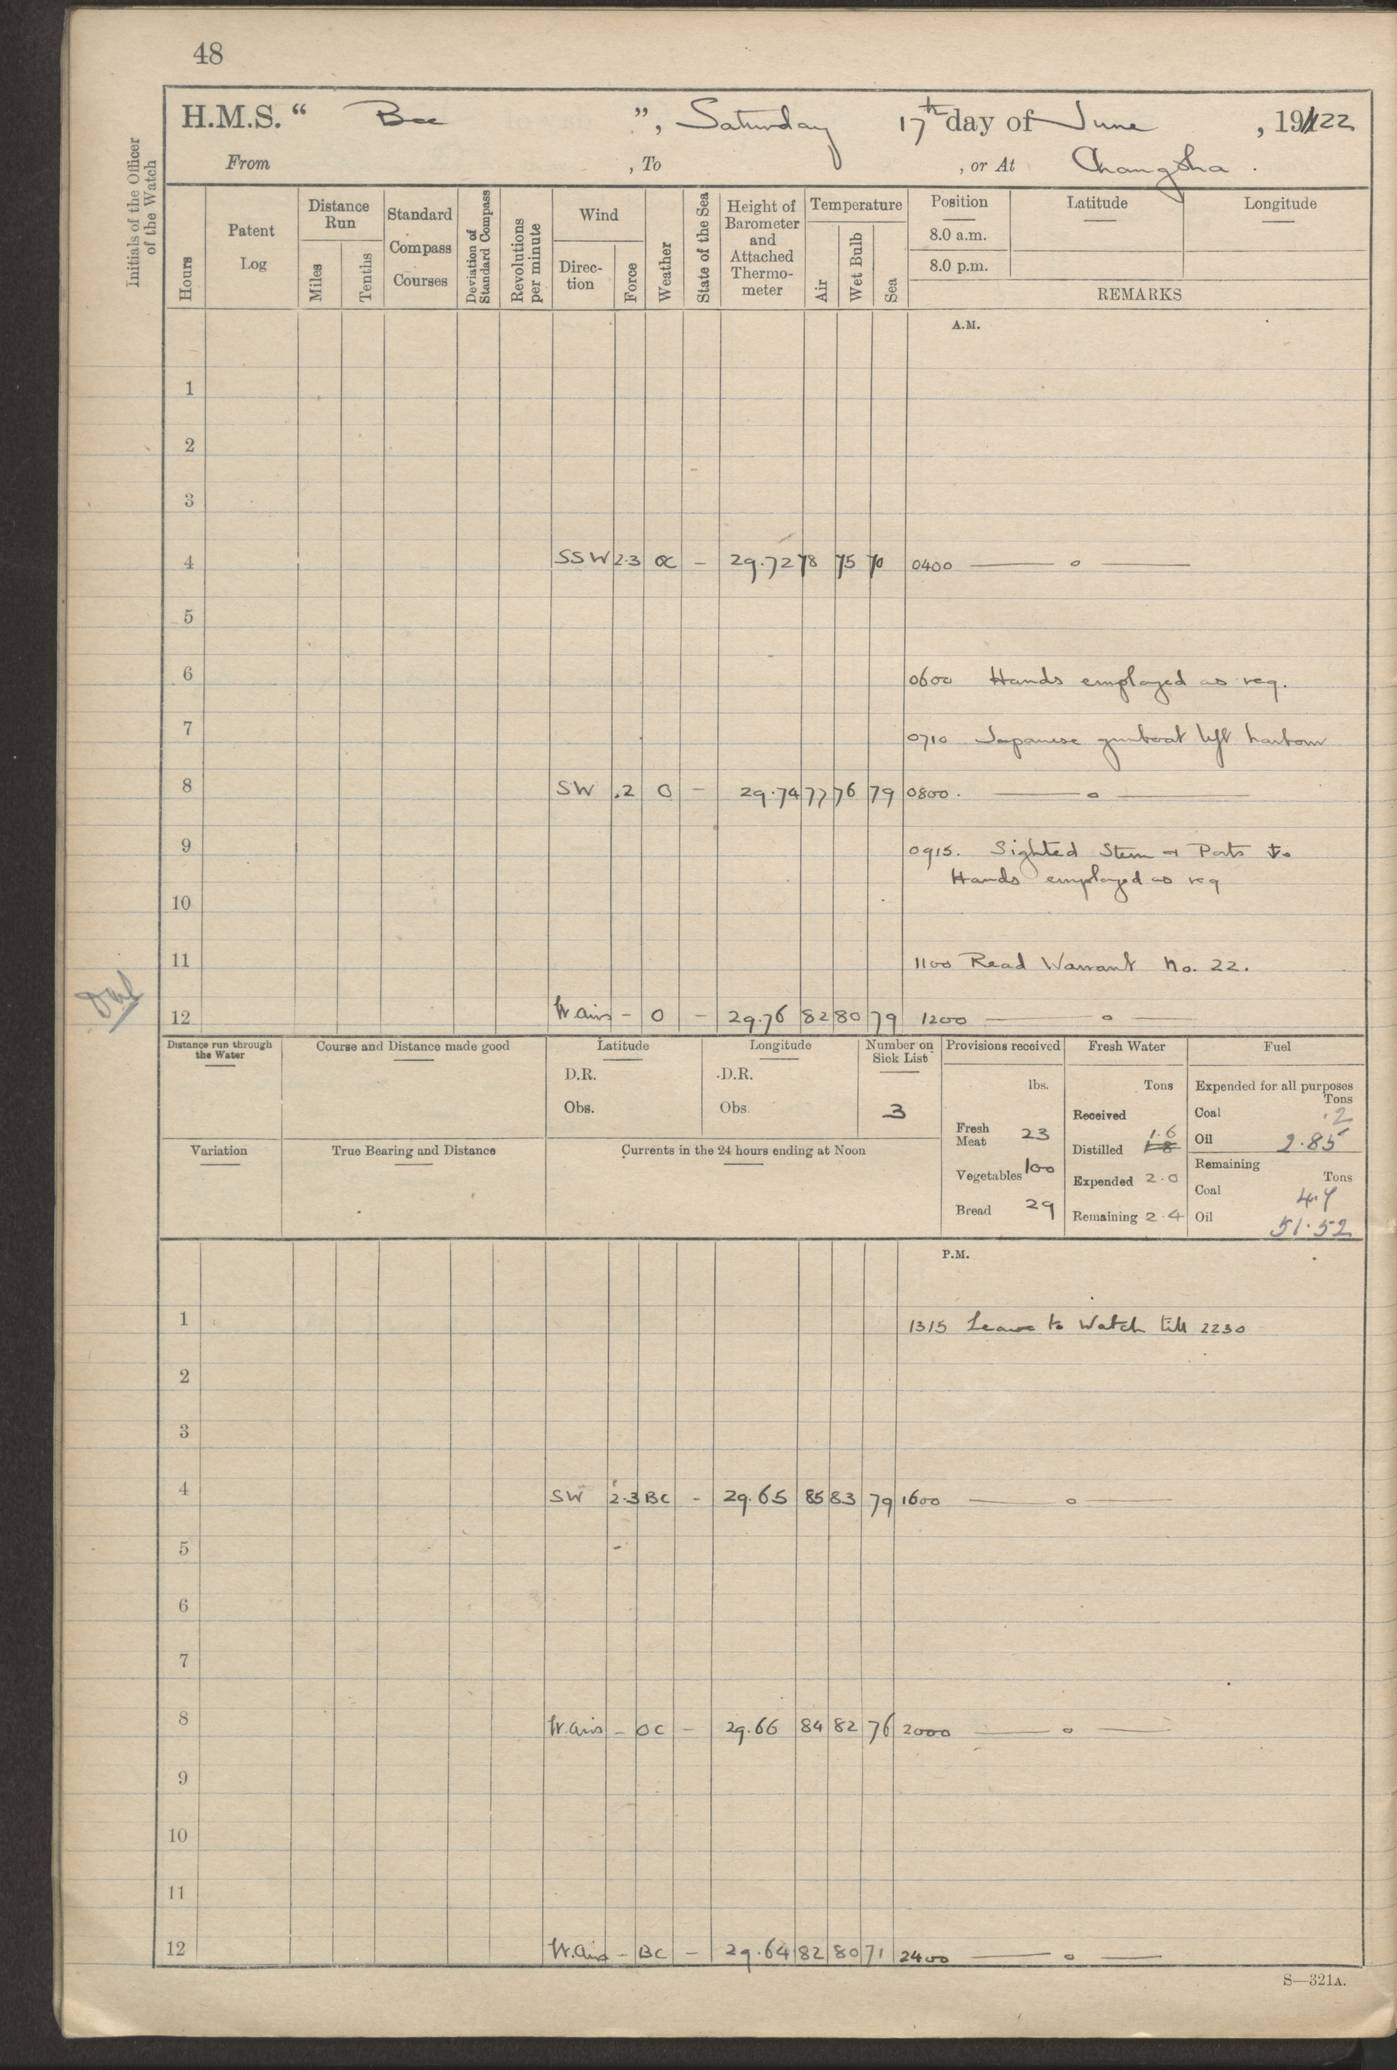 48
H.M.S. “ Bee ”, Saturday 17th day of June , 1922
From , To , or At Changsha .
Initials of the Officer of the Watch
Hours
Patent Log
Distance Run
Miles
Tenths
Standard Compass Courses
Deviation of Standard Compass
Revolutions per minute
Wind
Direction
Force
Weather
State of the Sea
Height of Barometer and Attached Thermometer
Temperature
Air
Wet Bulb
Sea
Position
8.0 a.m.
8.0 p.m.
Latitude
Longitude
REMARKS
A.M.
1
2
3
4 SSW 2.3 OC - 29.72 78 75 70 0400 —— o ——
5
6 0600 Hands employed as req.
7 0710 Japanese gunboat left harbour
8 SW .2 O - 29.74 77 76 79 0800 . —— o ——
9 0915. Sighted Stem
Hands employed as req
10
11 1100 Read Warrant No. 22.
12 Lt. airs - O - 29.76 82 80 79 1200 —— o ——
Distance run through the Water
Course and Distance made good
Latitude
D.R.
Obs.
Longitude
D.R.
Obs.
Number on Sick List
3
Provisions received
lbs.
Fresh Meat 23
Vegetables 100
Bread 29
Fresh Water
Tons
Received
Distilled 1.6
Expended 2.0
Remaining 2.4
Fuel
Expended for all purposes
Tons
Coal .2
Oil 2.85
Remaining
Tons
Coal 4.9
Oil 51.52
Variation
True Bearing and Distance
Currents in the 24 hours ending at Noon
P.M.
1 1315 Leave to Watch till 2230
2
3
4 SW 2.3 BC - 29.65 85 83 79 1600 —— o ——
5
6
7
8 Lt. airs - OC - 29.66 84 82 76 2000 —— o ——
9
10
11
12 Lt. airs - BC - 29.64 82 80 71 2400 —— o ——
S—321A.